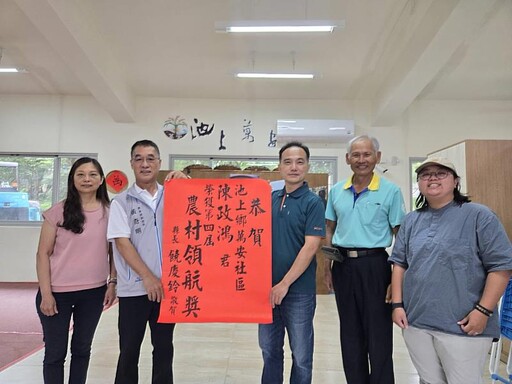 池上萬安
恭賀
池上鄉萬安社區
陳政鴻 君
榮獲第四屆
農村領航獎
縣長 饒慶鈴 敬賀